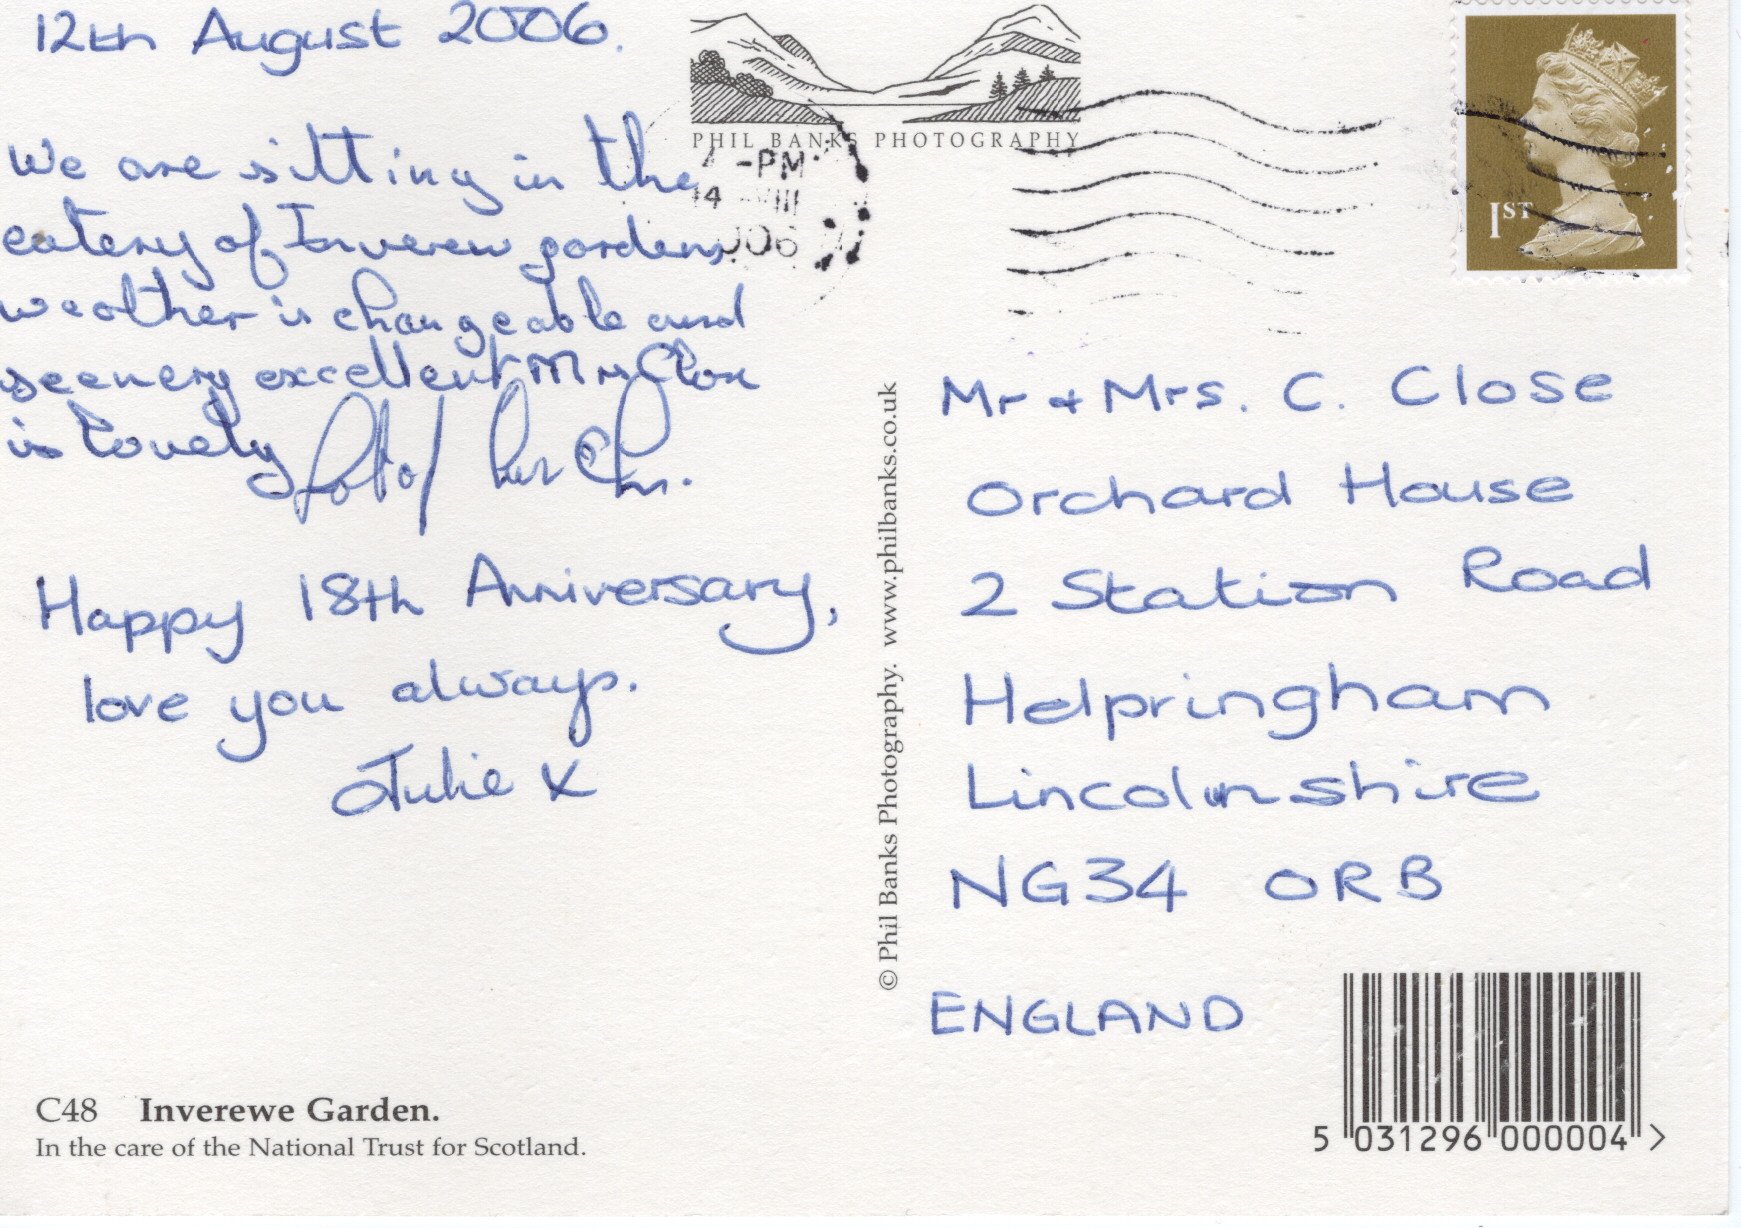 12th August 2006.
We are sitting in the
eatery of Inverew gardens
weather is changeable and
scenery excellent Mrs Close
is lovely
Happy 18th Anniversary,
love you always.
Julie X
C48 Inverewe Garden.
In the care of the National Trust for Scotland.
PHIL BANKS PHOTOGRAPHY
4 -PM
14 VIII
006
1ST
© Phil Banks Photography. www.philbanks.co.uk
Mr + Mrs. C. Close
Orchard House
2 Station Road
Helpringham
Lincolnshire
NG34 ORB
ENGLAND
5 031296 000004 >